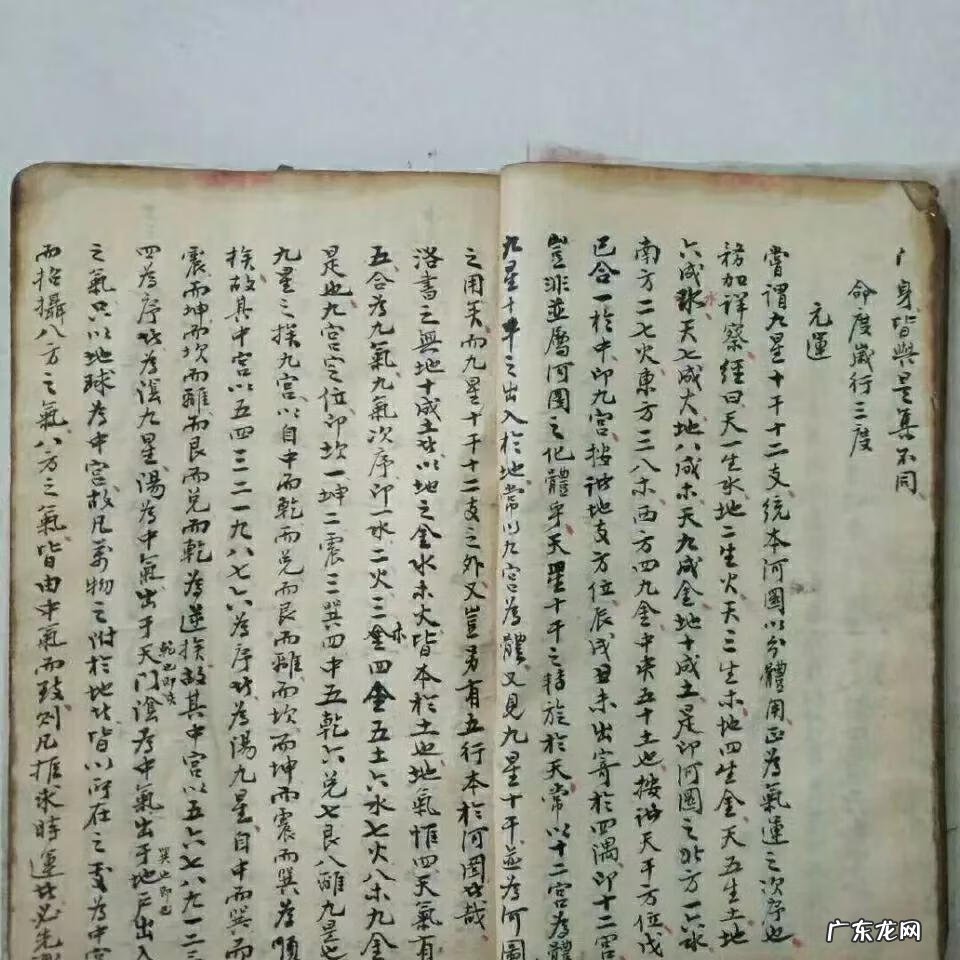 身皆與是真不同
命度歲行三度
元運
嘗謂九星十干十二支統本河圖以分體用正為氣運之次序也
務加詳察經曰天一生水地二生火天三生木地四生金天五生土地
六成水天七成火地八成木天九成金地十成土是即河圖之北方一六水
南方二七火東方三八木西方四九金中央五十土也按諸天干方位戊
己合一於中即九宮按諸地支方位辰戌丑未出寄於四隅即十二宮
豈非並屬河圖之化體乎天星十干之精於於天常以十二宮為體
九星十干之出入於地常以九宮為體又見九星十干並為河圖
之用矣而九星十干十二支之外又豈另有五行本於河圖者哉
洛書之無地十成土者以地之金水木火皆本於土也地氣惟四天氣有
五合為九氣九氣次序即一水二火三木四金五土六水七火八木九金
是也九宮定位即坎一坤二震三巽四中五乾六兌七艮八離九是也
九星之挨九宮以自中而乾而兌而艮而離而坎而坤而震而巽為順
挨故其中宮以五四三二一九八七六為序者為陽九星自中而巽而
震而坤而坎而離而艮而兌而乾為逆挨故其中宮以五六七八九一二三
四為序者為陰九星陽為中氣出于天門陰為中氣出于地戶出入
乾也即戌
巽也即巳
之氣只以地球為中宮故凡萬物之附於地者皆以所在之支為中宮
而招攝八方之氣八方之氣皆由中氣而致則凡推求時運者必先
广东龙网